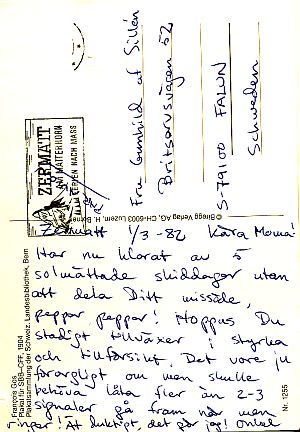 Fru Gunhild af Sillén
Britsarvsvägen 52
S-79100 FALUN
Schweden
ZERMATT
MATTERHORN
FERIEN NACH MASS
© Bregg Verlag AG, CH-6003 Luzern, H. Börner
Zermatt 1/3-82 Kära Moma!
Har nu klarat av 5
solmättade skiddagar utan
att dela Ditt missöde,
peppar peppar! Hoppas Du
stadigt tillväxer i styrka
och tillförsikt. Det vore ju
förargligt om man skulle
behöva låta fler än 2-3
signaler gå fram när man
ringer! Är duktigt, det gör jag! onkel
François Gos
Plakat für SBB-CFF, 1904
Plakatsammlung der Schweiz. Landesbibliothek, Bern
Nr. 1255